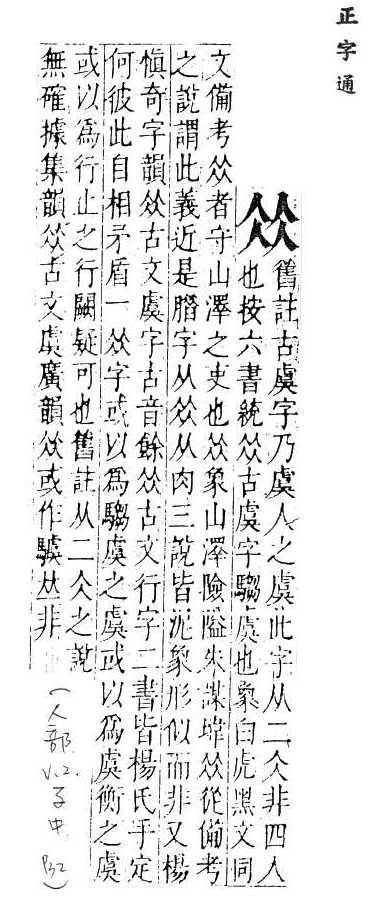 正字通
𠈌
舊註古虞字乃虞人之虞此字从二仌非四人
也按六書統𠈌古虞字騶虞也象白虎黑文同
文備考𠈌者守山澤之吏也𠈌象山澤險隘朱謀㙔𠈌從備考
之說謂此義近是腊字从𠈌从肉三說皆泥象形似而非又楊
慎奇字韻𠈌古文虞字古音餘𠈌古文行字二書皆楊氏手定
何彼此自相矛盾一𠈌字或以爲騶虞之虞或以爲虞衡之虞
或以爲行止之行闕疑可也舊註从二仌之說
無確據集韻𠈌古文虞廣韻𠈌或作𠀤非
(人部 v.2. 子中 p32)